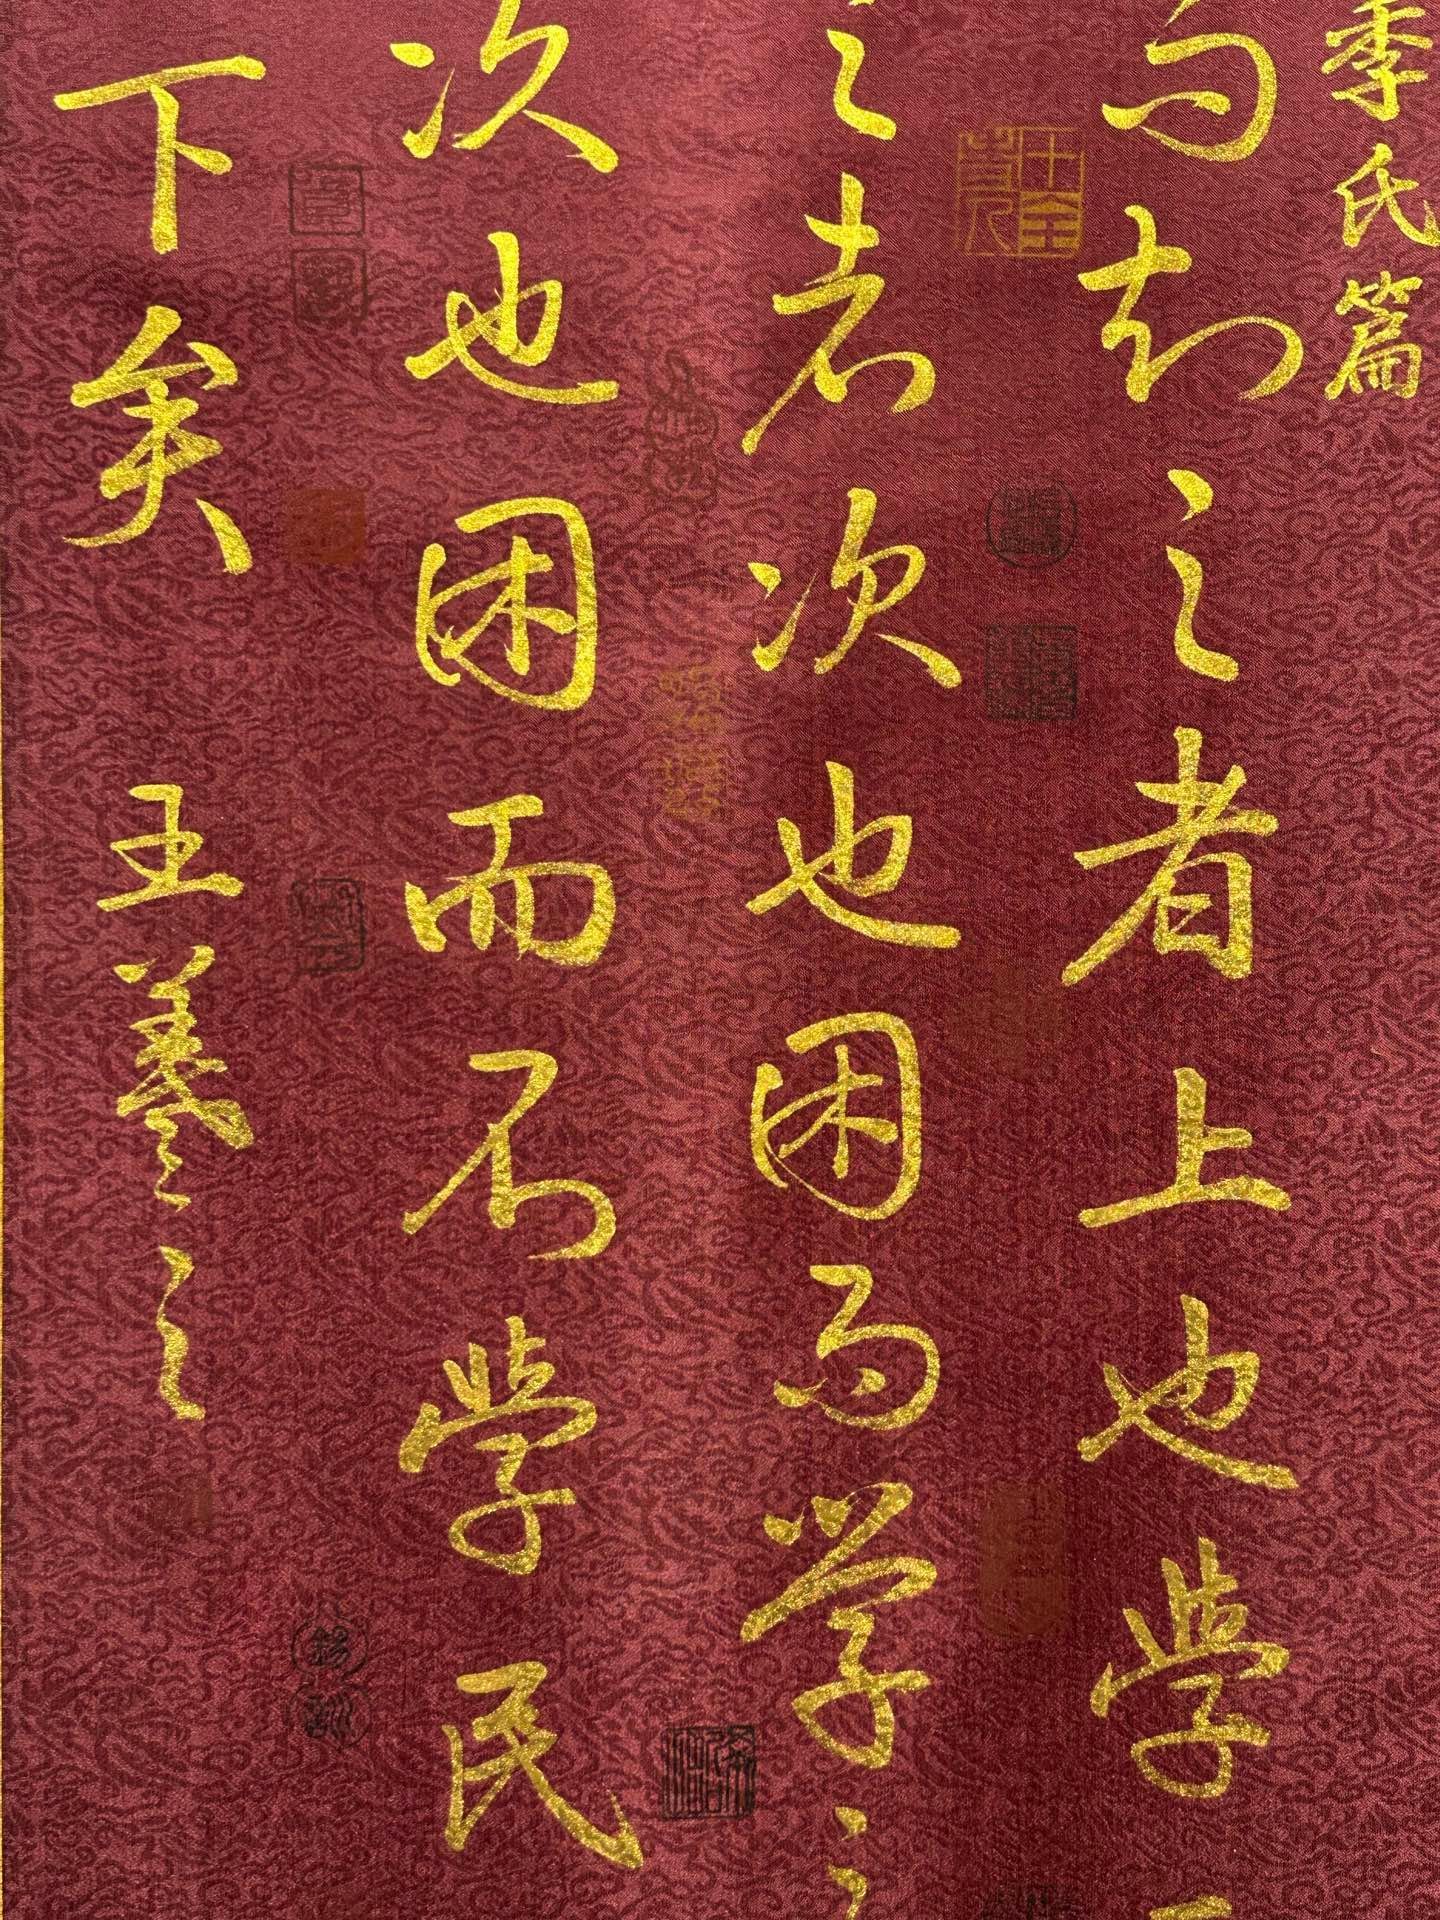 季氏篇
而知之者上也學而
之者次也困而學之
次也困而不學民
下矣 王羲之